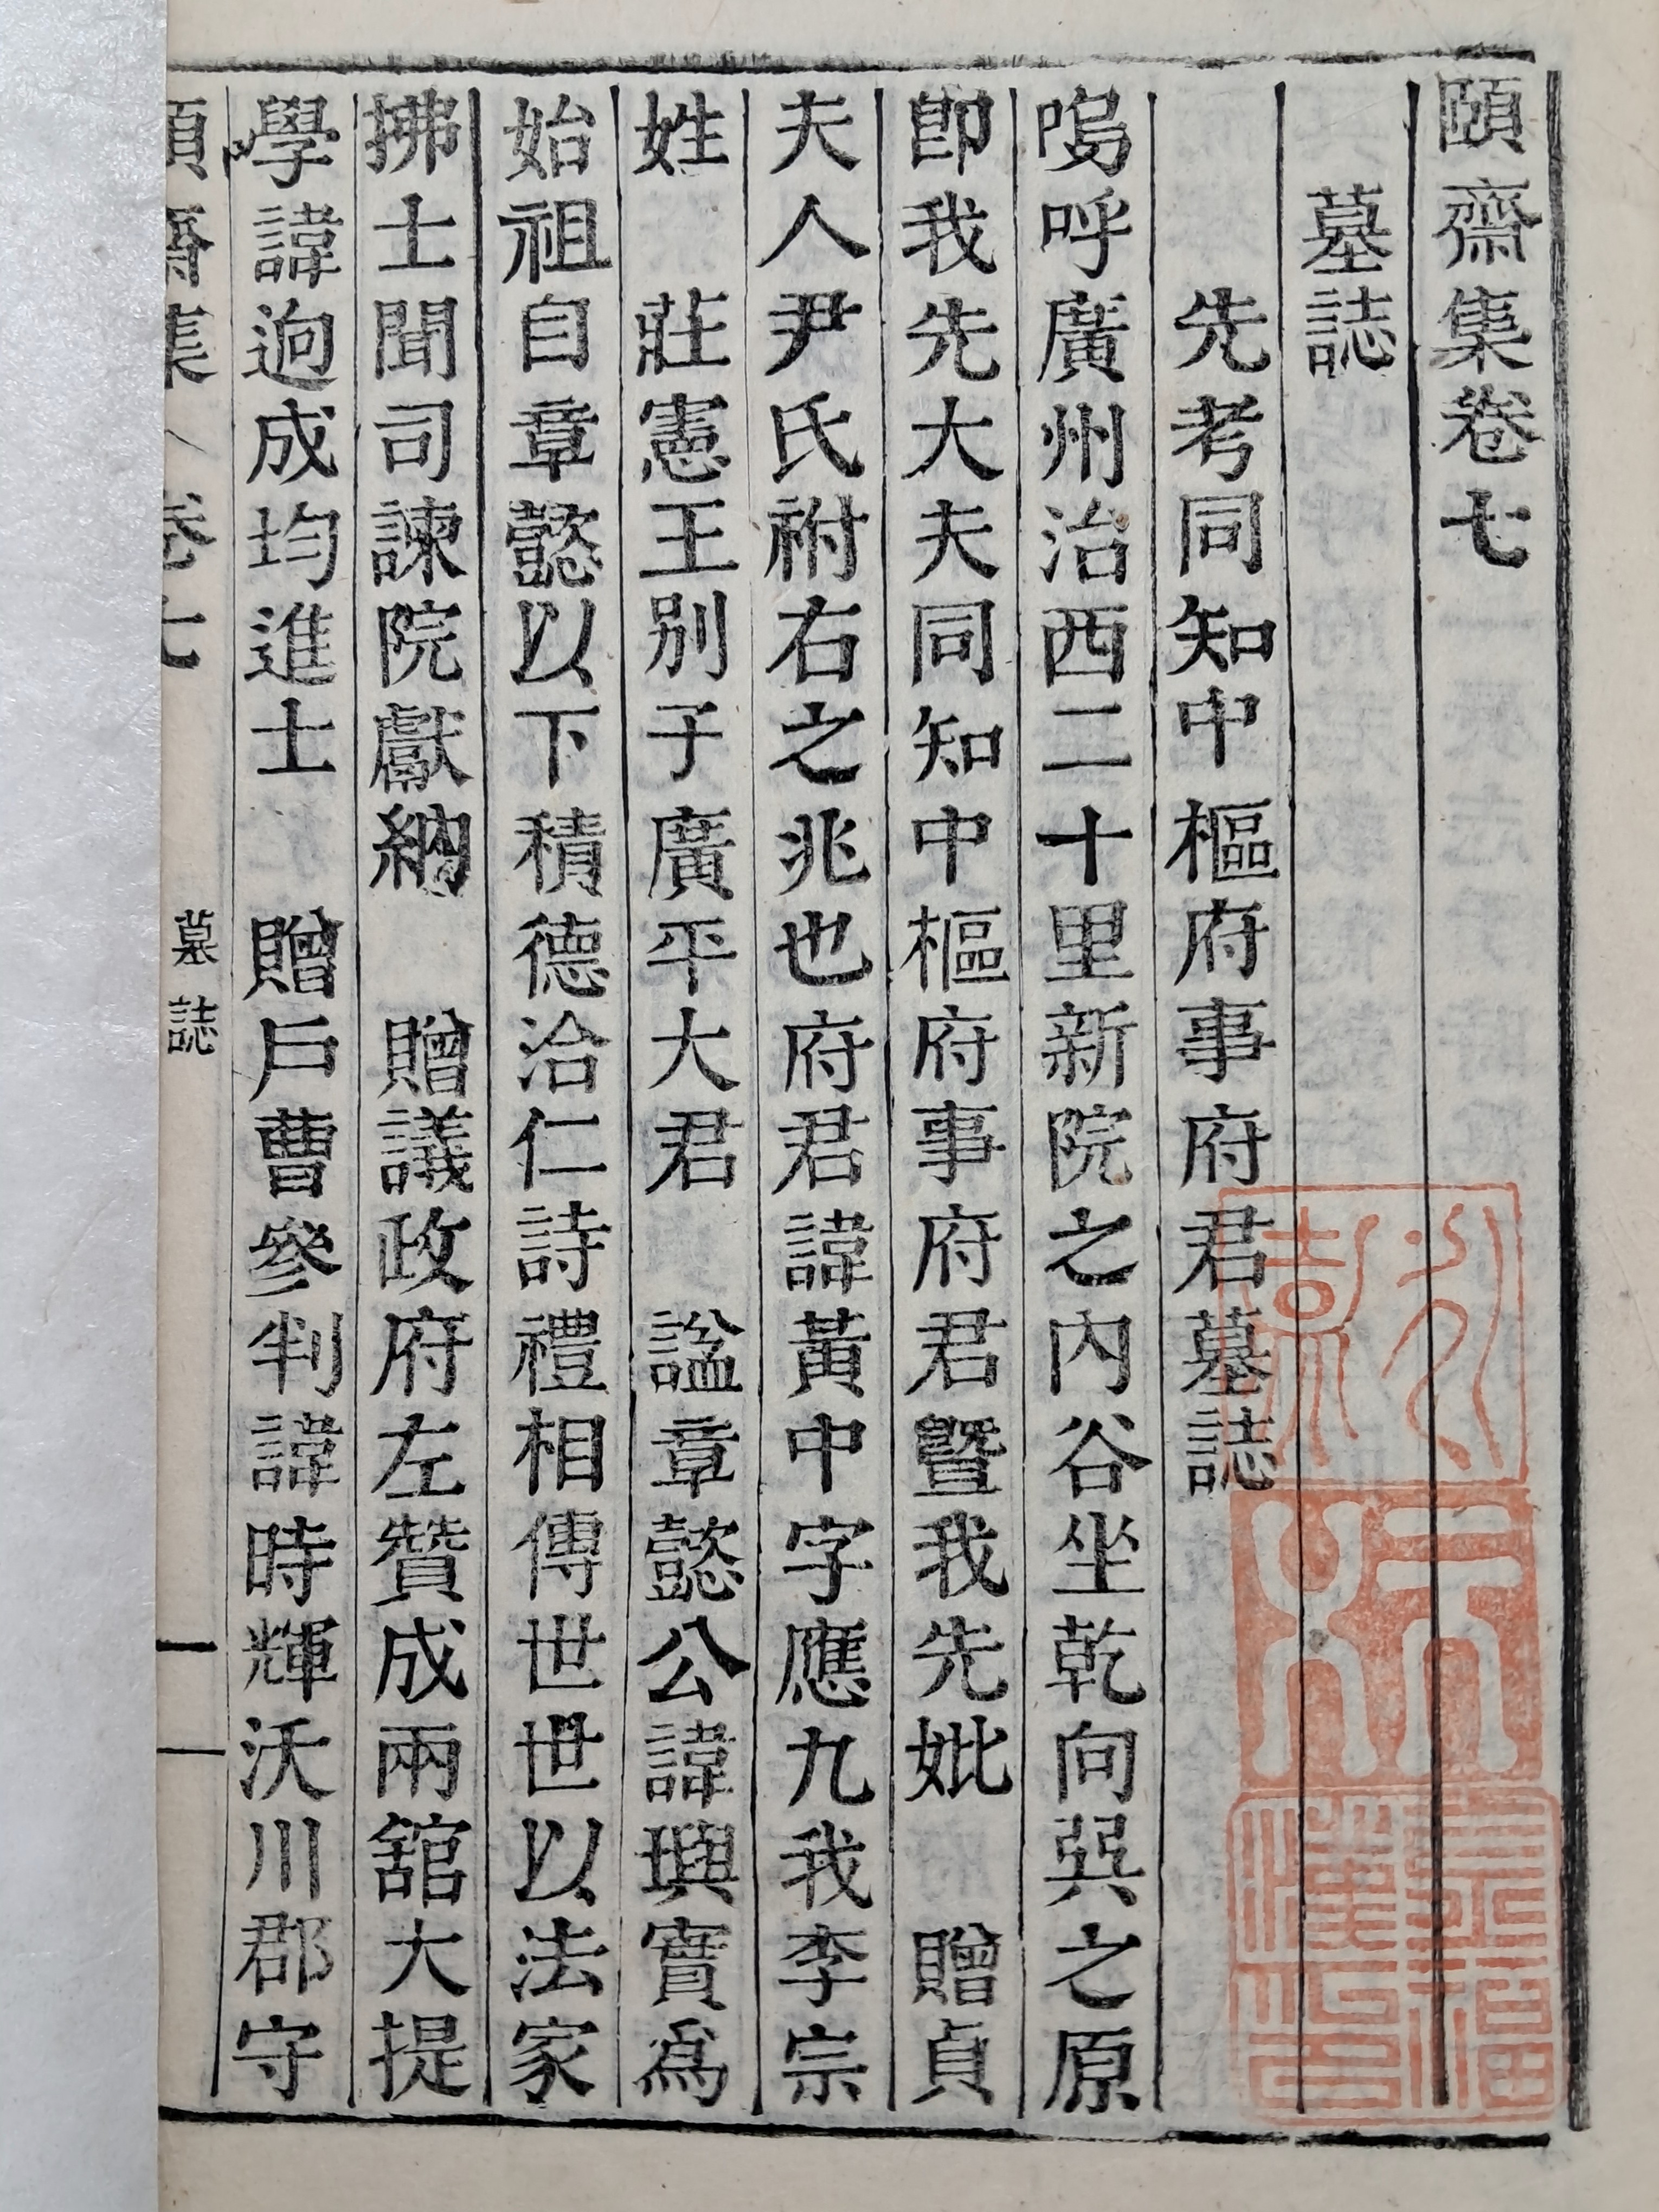 頤齋集卷七
墓誌
先考同知中樞府事府君墓誌
嗚呼廣州治西二十里新院之內谷坐乾向巽之原
卽我先大夫同知中樞府事府君曁我先妣 贈貞
夫人尹氏祔右之兆也府君諱黃中字應九我李宗
姓 莊憲王別子廣平大君 諡章懿公諱璵實爲
始祖自章懿以下積德洽仁詩禮相傳世世以法家
拂士聞司諫院獻納 贈議政府左贊成兩舘大提
學諱逈成均進士 贈戶曹參判諱時輝沃川郡守
頤齋集 卷七 墓誌 一